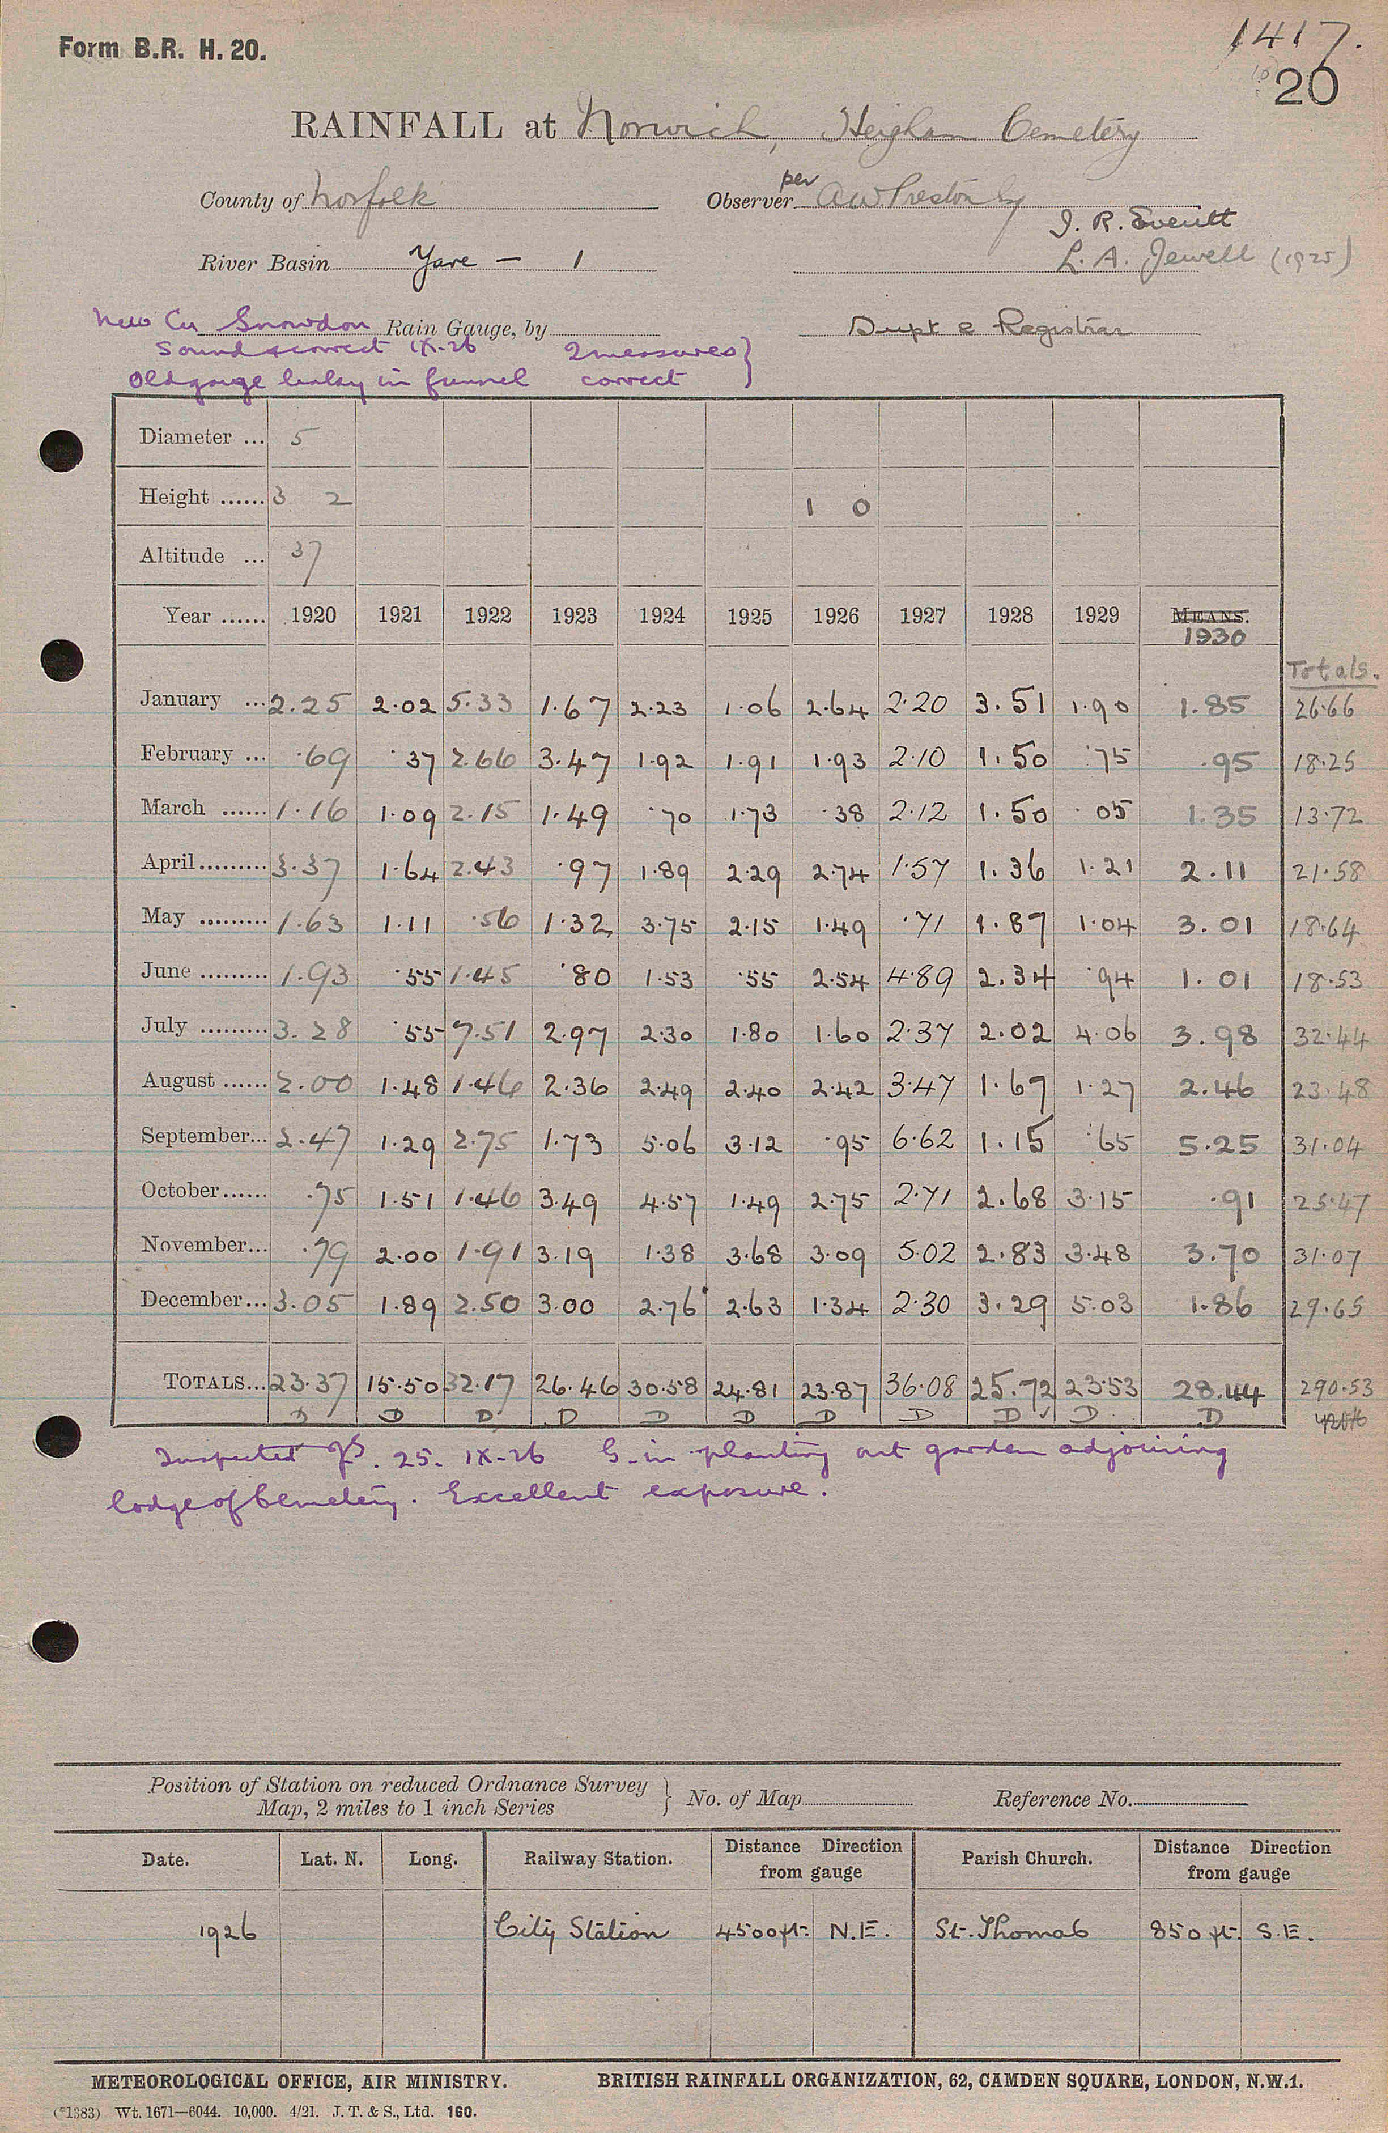 Form B.R. H. 20.
1417.
20
RAINFALL at Norwich, Heigham Cemetery
County of Norfolk
Observer per A W Preston by
J. R. Everitt
River Basin Yare – 1
L. A. Jewell (1925)
New Cu Snowdon Rain Gauge, by
Supt & Registrar
Sound & correct IX-26 2 measures }
Old gauge leaky in funnel correct
Diameter ... 5
Height ...... 3 2 1 0
Altitude ... 37
Year ...... 1920 1921 1922 1923 1924 1925 1926 1927 1928 1929 MEANS.
1930
Totals.
January ... 2.25 2.02 5.33 1.67 2.23 1.06 2.64 2.20 3.51 1.90 1.85 26.66
February ... .69 .37 2.66 3.47 1.92 1.91 1.93 2.10 1.50 .75 .95 18.25
March ...... 1.16 1.09 2.15 1.49 .70 1.73 .38 2.12 1.50 .05 1.35 13.72
April ......... 3.37 1.64 2.43 .97 1.89 2.29 2.74 1.57 1.36 1.21 2.11 21.58
May ......... 1.63 1.11 .56 1.32 3.75 2.15 1.49 .71 1.87 1.04 3.01 18.64
June ......... 1.93 .55 1.45 .80 1.53 .55 2.54 4.89 2.34 .94 1.01 18.53
July ......... 3.28 .55 7.51 2.97 2.30 1.80 1.60 2.37 2.02 4.06 3.98 32.44
August ...... 2.00 1.48 1.46 2.36 2.49 2.40 2.42 3.47 1.67 1.27 2.46 23.48
September... 2.47 1.29 2.75 1.73 5.06 3.12 .95 6.62 1.15 .65 5.25 31.04
October...... .75 1.51 1.46 3.49 4.57 1.49 2.75 2.71 2.68 3.15 .91 25.47
November... .79 2.00 1.91 3.19 1.38 3.68 3.09 5.02 2.83 3.48 3.70 31.07
December... 3.05 1.89 2.50 3.00 2.76 2.63 1.34 2.30 3.29 5.03 1.86 29.65
TOTALS... 23.37 15.50 32.17 26.46 30.58 24.81 23.87 36.08 25.72 23.53 28.44 290.53
D D D D D D D D D ✓ D. D
Inspected 25. IX-26 G. in planting out garden adjoining
lodge of Cemetery. Excellent exposure.
Position of Station on reduced Ordnance Survey
Map, 2 miles to 1 inch Series } No. of Map Reference No.
Date. Lat. N. Long. Railway Station. Distance Direction from gauge Parish Church. Distance Direction from gauge
1926 City Station 4500 ft. N.E. St. Thomas 850 ft. S.E.
METEOROLOGICAL OFFICE, AIR MINISTRY. BRITISH RAINFALL ORGANIZATION, 62, CAMDEN SQUARE, LONDON, N.W.1.
(*1383) Wt. 1671—6044. 10,000. 4/21. J. T. & S., Ltd. 160.